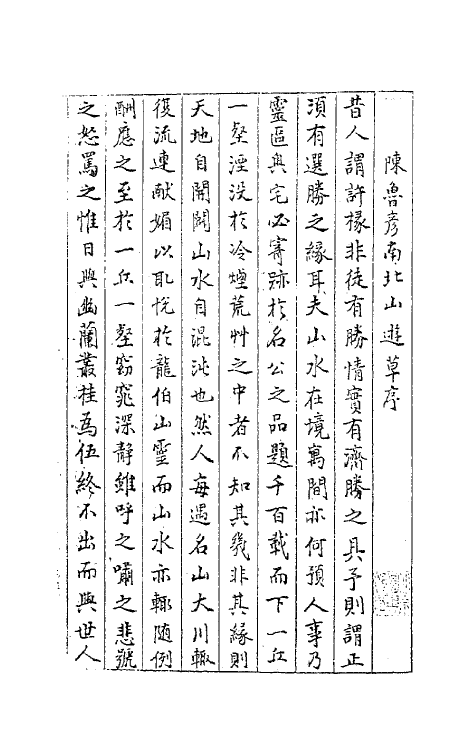 陳魯彥南北山遊草序
昔人謂許椽非徒有勝情實有濟勝之具予則謂正
湏有選勝之緣耳夫山水在境寓間亦何預人事乃
靈區奥宅必寄跡扵名公之品題千百載而下一丘
一壑湮没扵冷煙荒艸之中者不知其幾非其緣則
天地自開闢山水自混沌也然人每遇名山大川輒
復流連献媚以取悅扵龍伯山靈而山水亦輙随例
酬應之至扵一丘一壑窈窕深静雖呼之嘯之悲號
之怒罵之惟日與幽蘭叢桂為伍終不出而與世人